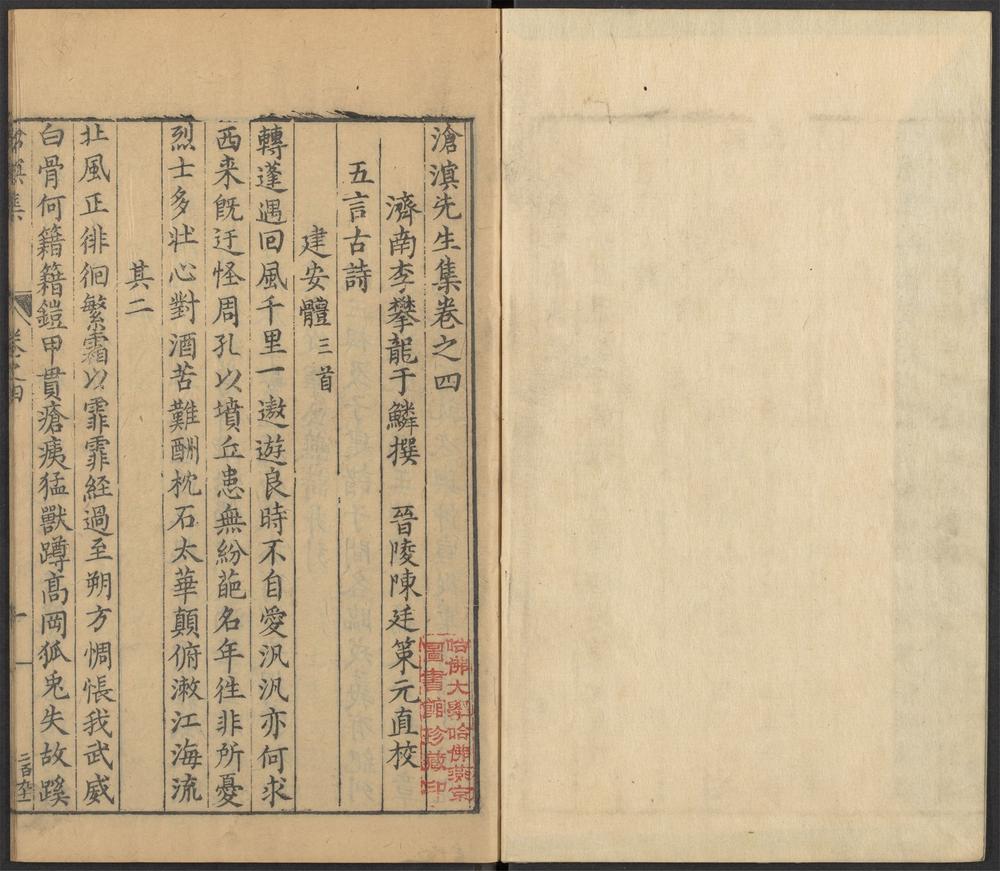 滄溟先生集卷之四
濟南李攀龍于鱗撰　晉陵陳廷策元直校
五言古詩
建安體三首
轉蓬遇回風千里一遨遊良時不自愛汎汎亦何求
西来既迂怪周孔以墳丘患無紛葩名年徃非所憂
烈士多壮心對酒苦難酬枕石太華顛俯漱江海流
其二
北風正徘徊繁霜以霏霏経過至朔方惆悵我武威
白骨何籍籍鎧甲貫瘡痍猛獸蹲高岡狐兎失故蹊
滄溟集　卷之四　一
哈佛大學哈佛燕京
圖書館珍藏印